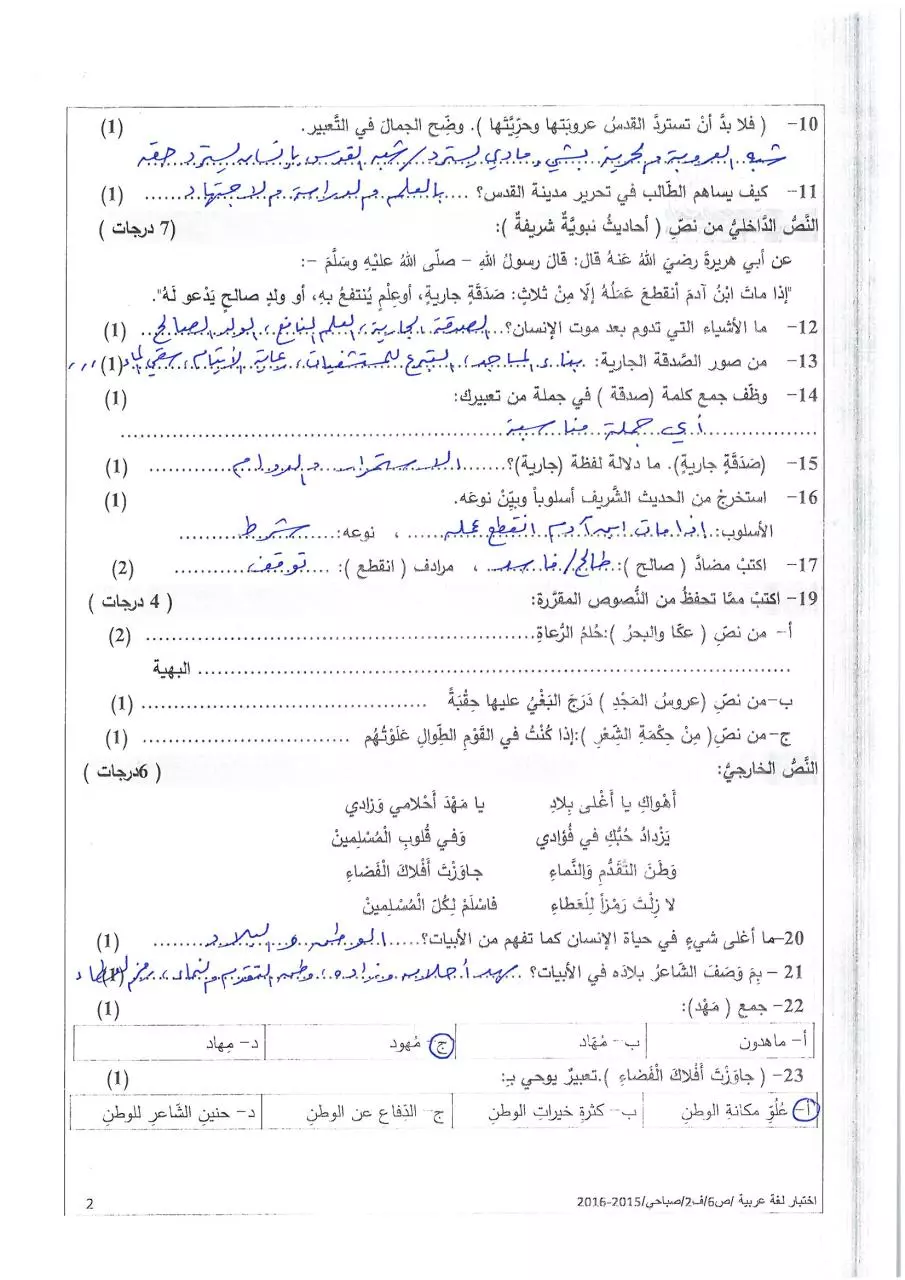 10- ( فلا بدَّ أنْ تستردَّ القدسُ عروبَتها وحرِّيَّتها ). وضِّح الجمال في التَّعبير. (1)
شبه العروبة والحرية بشيء مادي يسترد / شبه القدس بإنسان يسترد حقه
11- كيف يساهم الطّالب في تحرير مدينة القدس؟ .... بالعلم والدراسة والاجتهاد ...... (1)
النَّصُّ الدَّاخليُّ من نصِّ ( أحاديثُ نبويَّةٌ شريفةٌ ): (7 درجات )
عن أبي هريرةَ رضيَ اللهُ عَنهُ قال: قالَ رسولُ اللهِ – صلّى اللهُ عليْهِ وسَلَّمَ –:
"إذا ماتَ ابْنُ آدمَ أنقطعَ عَمَلُهُ إلّا مِنْ ثلاثٍ: صَدَقَةٍ جاريةٍ، أوعِلْمٍ يُنْتفعُ بهِ، أو ولدٍ صالحٍ يَدْعو لَهُ".
12- ما الأشياء التي تدوم بعد موت الإنسان؟ الصدقة الجارية، العلم النافع، الولد الصالح (1)
13- من صور الصَّدقة الجارية: بناء المساجد، التبرع للمستشفيات، رعاية الأيتام، سقي الماء (1)
14- وظِّف جمع كلمة (صدقة ) في جملة من تعبيرك: (1)
أي جملة مناسبة
15- (صَدَقَةٍ جاريةٍ). ما دلالة لفظة (جارية)؟ ....... الاستمرار والدوام (1)
16- استخرجْ من الحديث الشَّريف أسلوباً وبيِّنْ نوعَه. (1)
الأسلوب: إذا مات ابن آدم انقطع عمله ...... ، نوعه: شرط
17- اكتبْ مضادَّ ( صالح ): طالح/ فاسد ، مرادف ( انقطع ): .... توقف (2)
19- اكتبْ ممّا تحفظُ من النُّصوص المقرَّرة: ( 4 درجات )
أ- من نصِّ ( عكّا والبحرُ ):حُلمُ الرُّعاةِ ...... (2)
...... البهية
ب-من نصِّ (عروس المَجْدِ ) دَرَجَ البَغْيُ عليها حِقْبَةً ...... (1)
ج-من نصِّ( مِنْ حِكْمَةِ الشِّعْرِ ):إذا كُنْتُ في القَوْمِ الطِّوالِ عَلَوْتُهُم ...... (1)
النَّصُّ الخارجيُّ: ( 6درجات )
أَهْواكِ يا أَغْلى بِلادِ يا مَهْدَ أَحْلامي وَزادي
يَزْدادُ حُبُّكِ في فُؤادي وَفي قُلوبِ الْمُسْلِمينْ
وَطَنَ التَّقَدُّمِ وَالنَّماءِ جاوَزْتَ أَفْلاكَ الْفَضاءِ
لا زِلْتَ رَمْزاً لِلْعَطاءِ فَاسْلَمْ لِكُلِّ الْمُسْلِمينْ
20-ما أغلى شيءٍ في حياة الإنسان كما تفهم من الأبيات؟ ..... الوطن والبلاد (1)
21 – بِمَ وَصَفَ الشّاعرُ بلادَه في الأبيات؟ مهد أحلامه وزاده، وطن التقدم والنماء، رمز العطاء (1)
22- جمع ( مَهْد): (1)
أ- ماهدون ب- مُهَاد ج- مُهود د- مِهاد
23- ( جاوَزْتَ أَفْلاكَ الْفَضاءِ ).تعبيرٌ يوحي بـِ: (1)
أ- عُلُوِّ مكانةِ الوطنِ ب- كثرةِ خيراتِ الوطنِ ج- الدِّفاعِ عن الوطنِ د- حنينِ الشّاعرِ للوطنِ
اختبار لغة عربية /ص6/ف2/صباحي/2015-2016 2